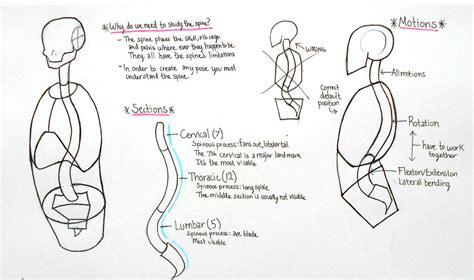 *Why do we need to study the spine?*
- The spine places the skull, rib cage
and pelvis where ever they happen to be
They all have the spine's limitations
- In order to create any pose you must
understand the spine.
*Sections*
Cervical (7)
Spinous process: fans out, lobster tail
The 7th cervical is a major land mark
It's the most visable
Thoracic (12)
Spinous process: long spike
The middle section is usually not visable
Lumbar (5)
Spinous process: axe blade
Most visable
WRONG
*Motions*
All motions
Correct
default
position
Rotation
have to work
together
Flexion/Extension
Lateral bending